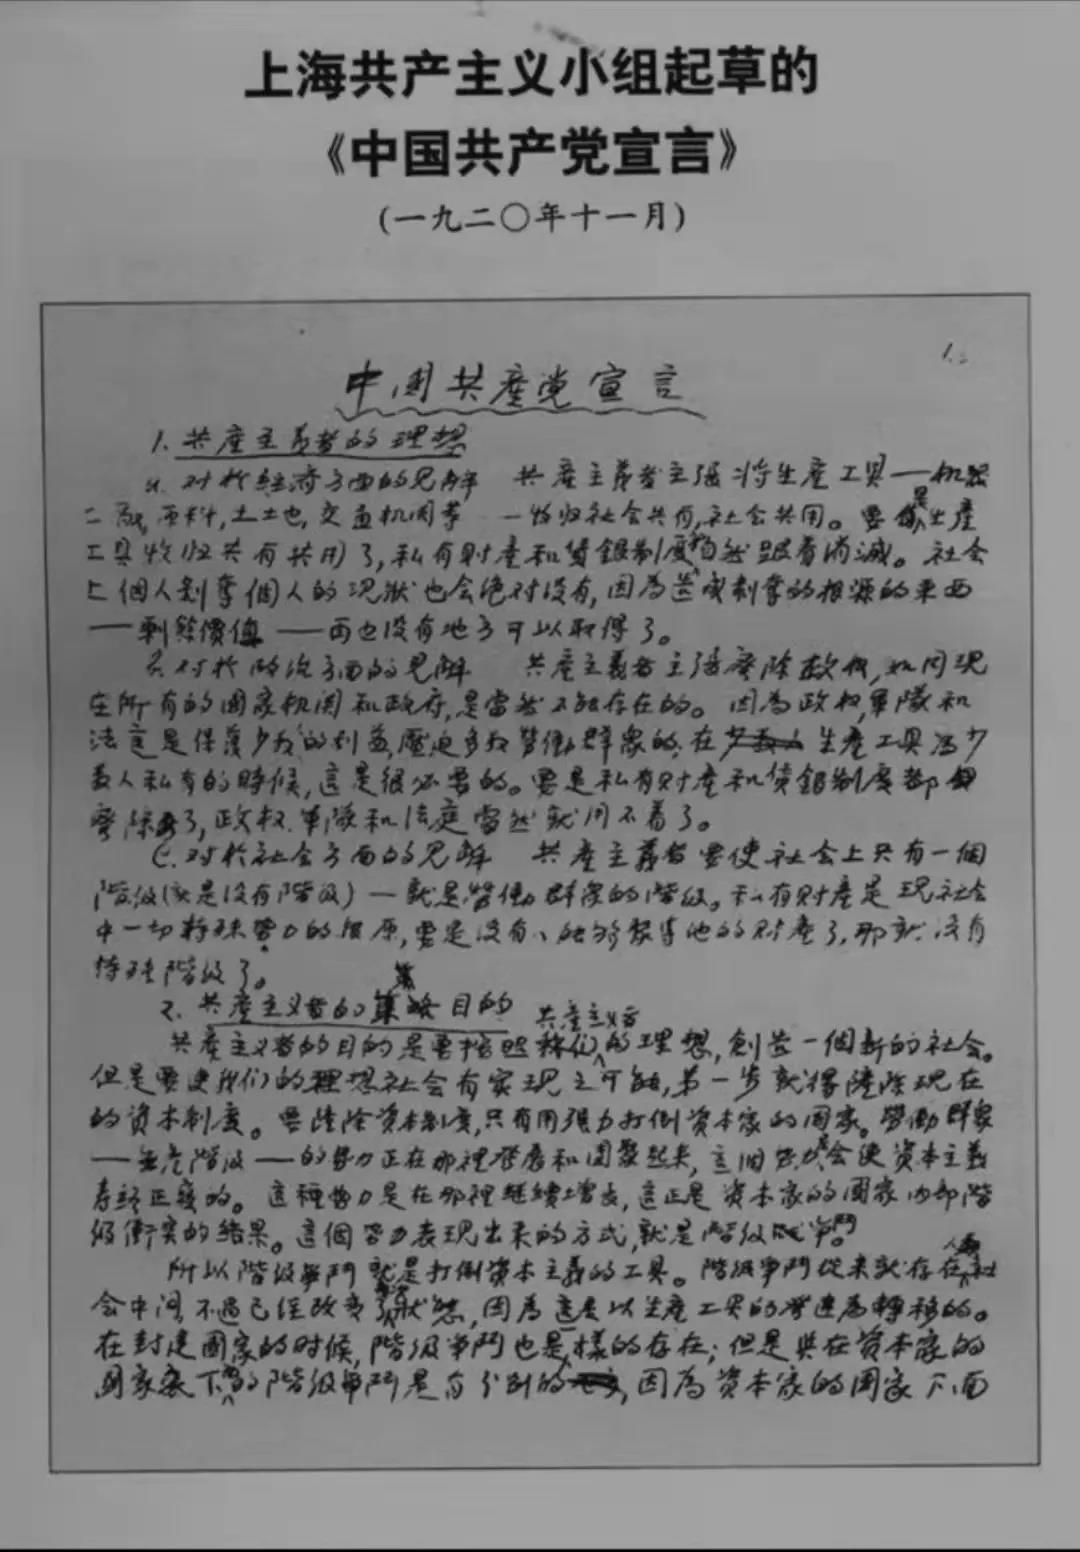 上海共产主义小组起草的
《中国共产党宣言》
(一九二〇年十一月)
1.
中国共產党宣言
1. 共產主義者的理想
a. 对於經济方面的見解 共產主義者主張将生產工具——机器
工厰,原料,土地,交通机関等——收归社会共有,社会共用。要是生產
工具收归共有共用了,私有財產和賃銀制度就自然跟着消滅。社会
上個人剝奪個人的現狀也会绝对没有,因為造成剝奪的根源的東西
——剩餘價值——再也没有地方可以取得了。
B. 对於政治方面的見解 共產主義者主張廢除政权,如同現
在所有的國家机関和政府,是當然不能存在的。因為政权,軍隊和
法庭是保護少数人的利益,壓迫多数勞働群衆的;在生產工具為少
数人私有的時候,這是很必要的。要是私有財產和賃銀制度都
廢除了,政权、軍隊和法庭當然就用不着了。
C. 对於社会方面的見解 共產主義者要使社会上只有一個
階級(就是没有階級)——就是勞働群衆的階級。私有財產是現社会
中一切特殊勢力的根原,要是没有人能够聚集他的財產了,那就没有
特殊階級了。
2. 共產主义者的目的
共產主义者的目的是要按照共產主义者的理想,創造一個新的社会。
但是要使我们的理想社会有实現之可能,第一步就得鏟除現在
的資本制度。要鏟除資本制度,只有用强力打倒資本家的國家。勞働群衆
——無產階級——的势力正在那裡發展和團聚起来,這個势力是会使資本主義
寿終正寝的。這種势力是在那裡継續增長,這正是資本家的國家内部階
級衝突的結果。這個势力表現出来的方式,就是階級鬥争。
所以階級争鬥就是打倒資本主義的工具。階級争鬥從来就存在人類社
会中间,不過已經改变了状態,因為這是以生產工具的發達為轉移的。
在封建國家的时候,階級争鬥也是一樣的存在;但是與在資本家的
國家底下的階級争鬥是有分别的,因為資本家的國家下面